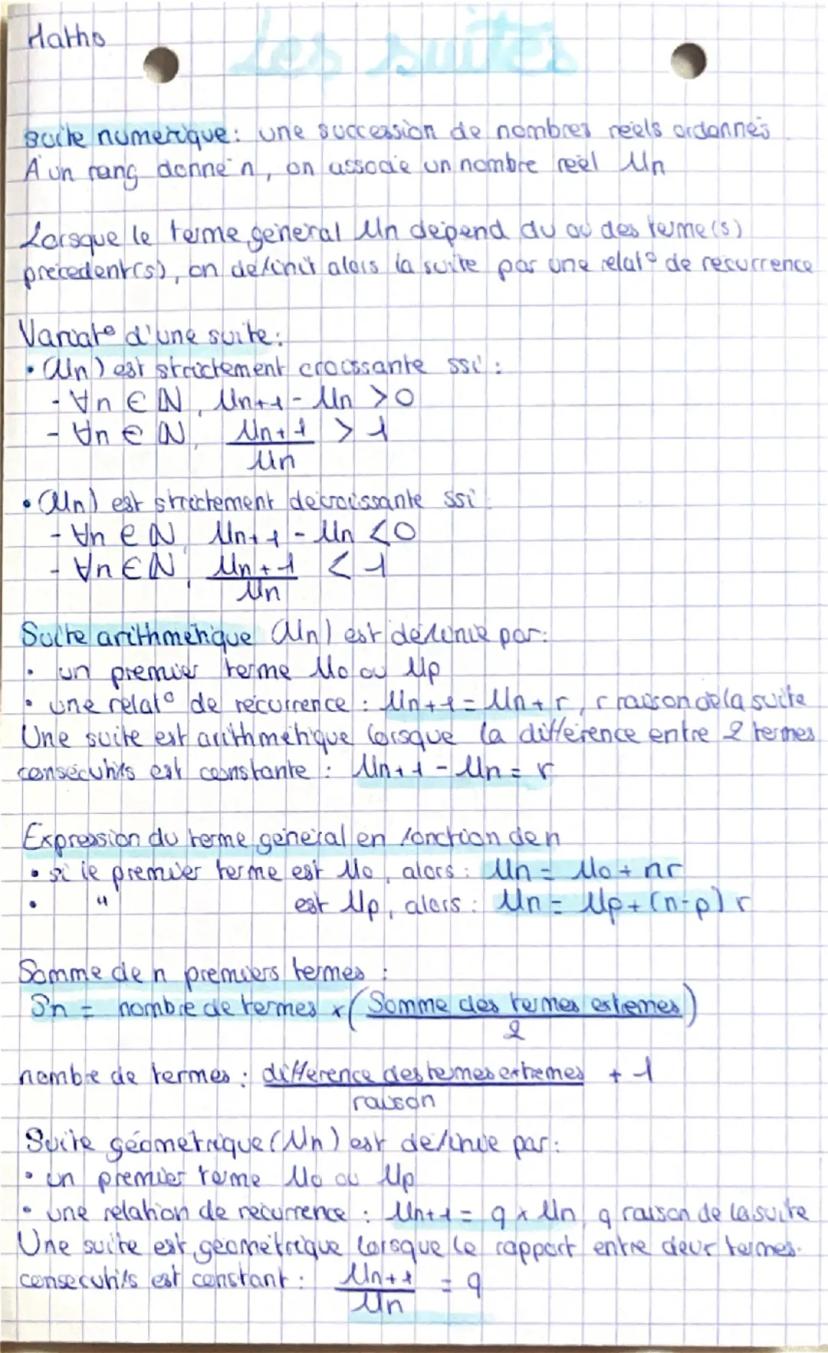 Maths
Les suites
Suite numérique : une succession de nombres réels ordonnés
À un rang donné n, on associe un nombre réel Un
Lorsque le terme général Un dépend du ou des terme(s)
précédent(s), on définit alors la suite par une relat° de récurrence
Variat° d'une suite :
• (Un) est strictement croissante ssi :
- ∀n ∈ N, Un+1 - Un > 0
- ∀n ∈ N, Un+1 / Un > 1
• (Un) est strictement décroissante ssi :
- ∀n ∈ N, Un+1 - Un < 0
- ∀n ∈ N, Un+1 / Un < 1
Suite arithmétique (Un) est définie par :
• un premier terme U0 ou Up
• une relat° de récurrence : Un+1 = Un + r, r raison de la suite
Une suite est arithmétique lorsque la différence entre 2 termes
consécutifs est constante : Un+1 - Un = r
Expression du terme général en fonction de n
• si le premier terme est U0, alors : Un = U0 + nr
• " est Up, alors : Un = Up + (n-p) r
Somme de n premiers termes :
Sn = nombre de termes x (Somme des termes extemes / 2)
nombre de termes : différence des termes extremes / raison + 1
Suite géométrique (Un) est définie par :
• un premier terme U0 ou Up
• une relation de récurrence : Un+1 = q x Un, q raison de la suite
Une suite est géométrique lorsque le rapport entre deux termes
consécutifs est constant : Un+1 / Un = q